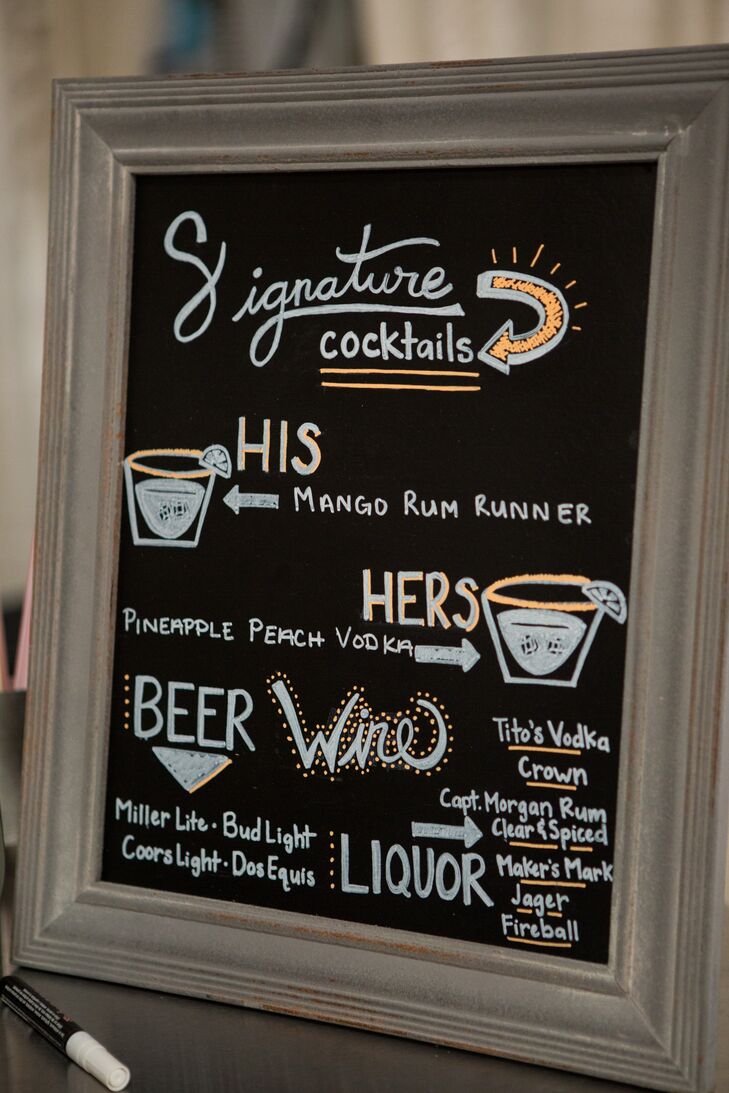 Signature
cocktails
HIS
MANGO RUM RUNNER
HERS
PINEAPPLE PEACH VODKA
BEER
Wine
Miller Lite • Bud Light
Coors Light • Dos Equis
LIQUOR
Tito's Vodka
Crown
Capt. Morgan Rum
Clear & Spiced
Maker's Mark
Jager
Fireball